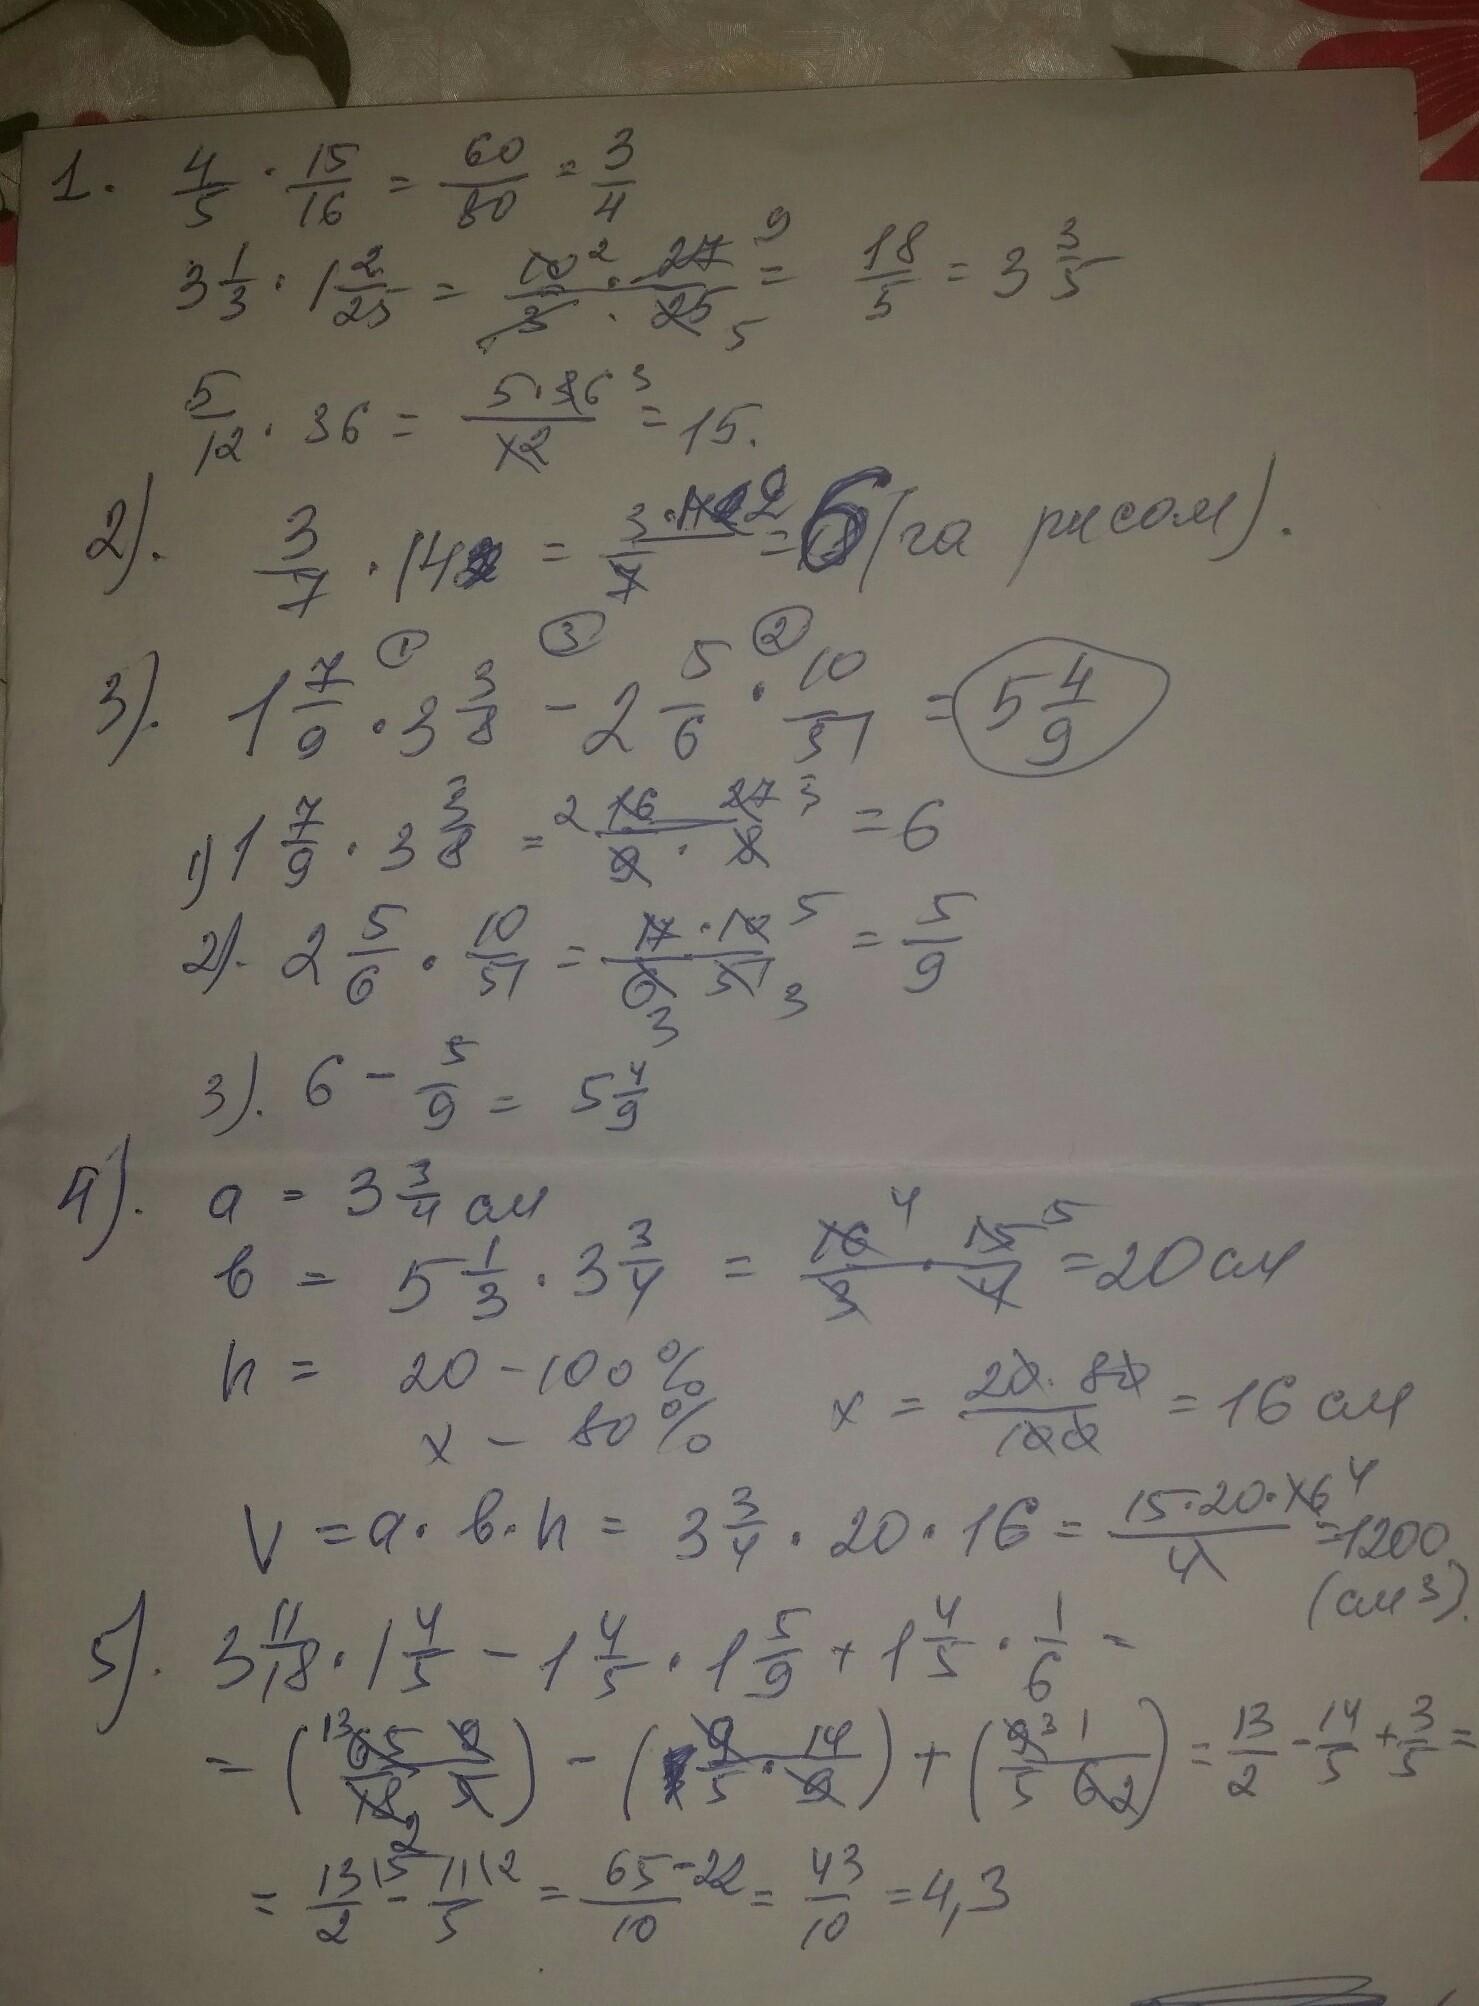 1. 4/5 · 15/16 = 60/80 = 3/4
3 1/3 · 1 2/25 = 10 2/3 · 27 9/25 5 = 18/5 = 3 3/5
5/12 · 36 = 5·36 3/12 = 15.
2). 3/7 · 14 = 3·14 2/7 = 6 (га рисом).
3). 1 7/9 ① · 3 3/8 ③ - 2 5/6 ② · 10/51 = 5 4/9
1) 1 7/9 · 3 3/8 = 2 16/9 · 27 3/8 = 6
2). 2 5/6 · 10/51 = 17·10 5/6 3 51 3 = 5/9
3). 6 - 5/9 = 5 4/9
4). a = 3 3/4 см
b = 5 1/3 · 3 3/4 = 16 4/3 · 15 5/4 = 20 см
h = 20 - 100%
x - 80% x = 20·80/100 = 16 см
V = a·b·h = 3 3/4 · 20 · 16 = 15·20·16 4/4 = 1200
(см3).
5). 3 11/18 · 1 4/5 - 1 4/5 · 1 5/9 + 1 4/5 · 1/6 =
= (13 65/18 2 9/5) - (9/5 · 14/9) + (9 3/5 1/6 2) = 13/2 - 14/5 + 3/5 =
= 13 15/2 - 11 12/5 = 65-22/10 = 43/10 = 4,3